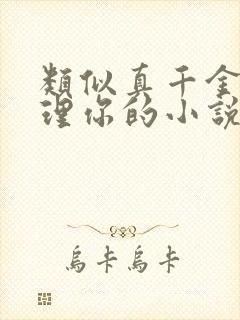 類似真千金
理你的小說
烏卡烏卡